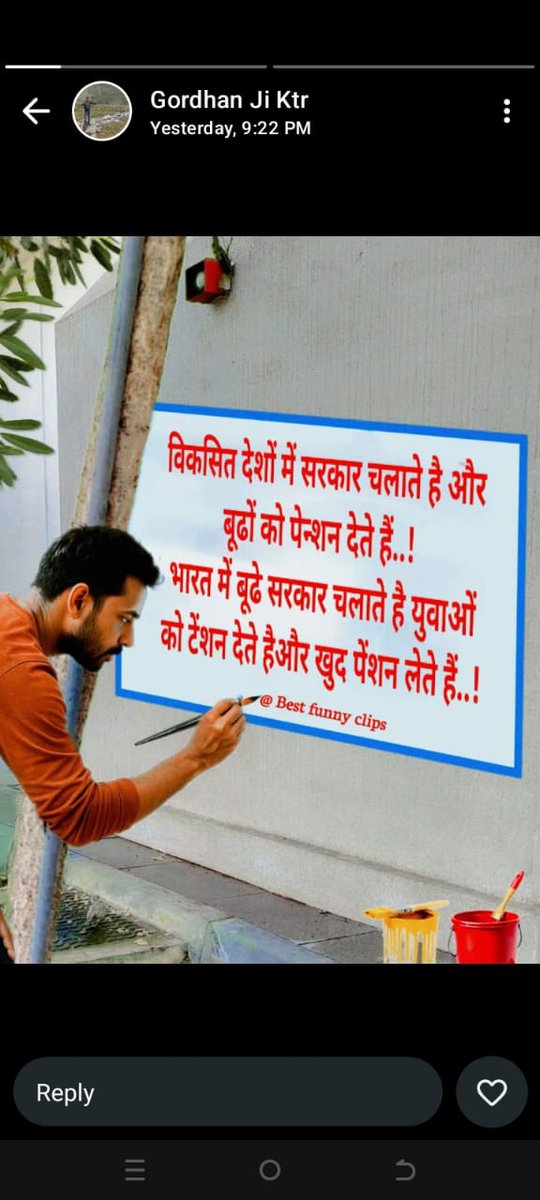 Gordhan Ji Ktr
Yesterday, 9:22 PM
विकसित देशों में सरकार चलाते है और
बूढों को पेन्शन देते हैं..!
भारत में बूढे सरकार चलाते है युवाओं
को टेंशन देते हैऔर खुद पेंशन लेते हैं..!
@ Best funny clips
Reply